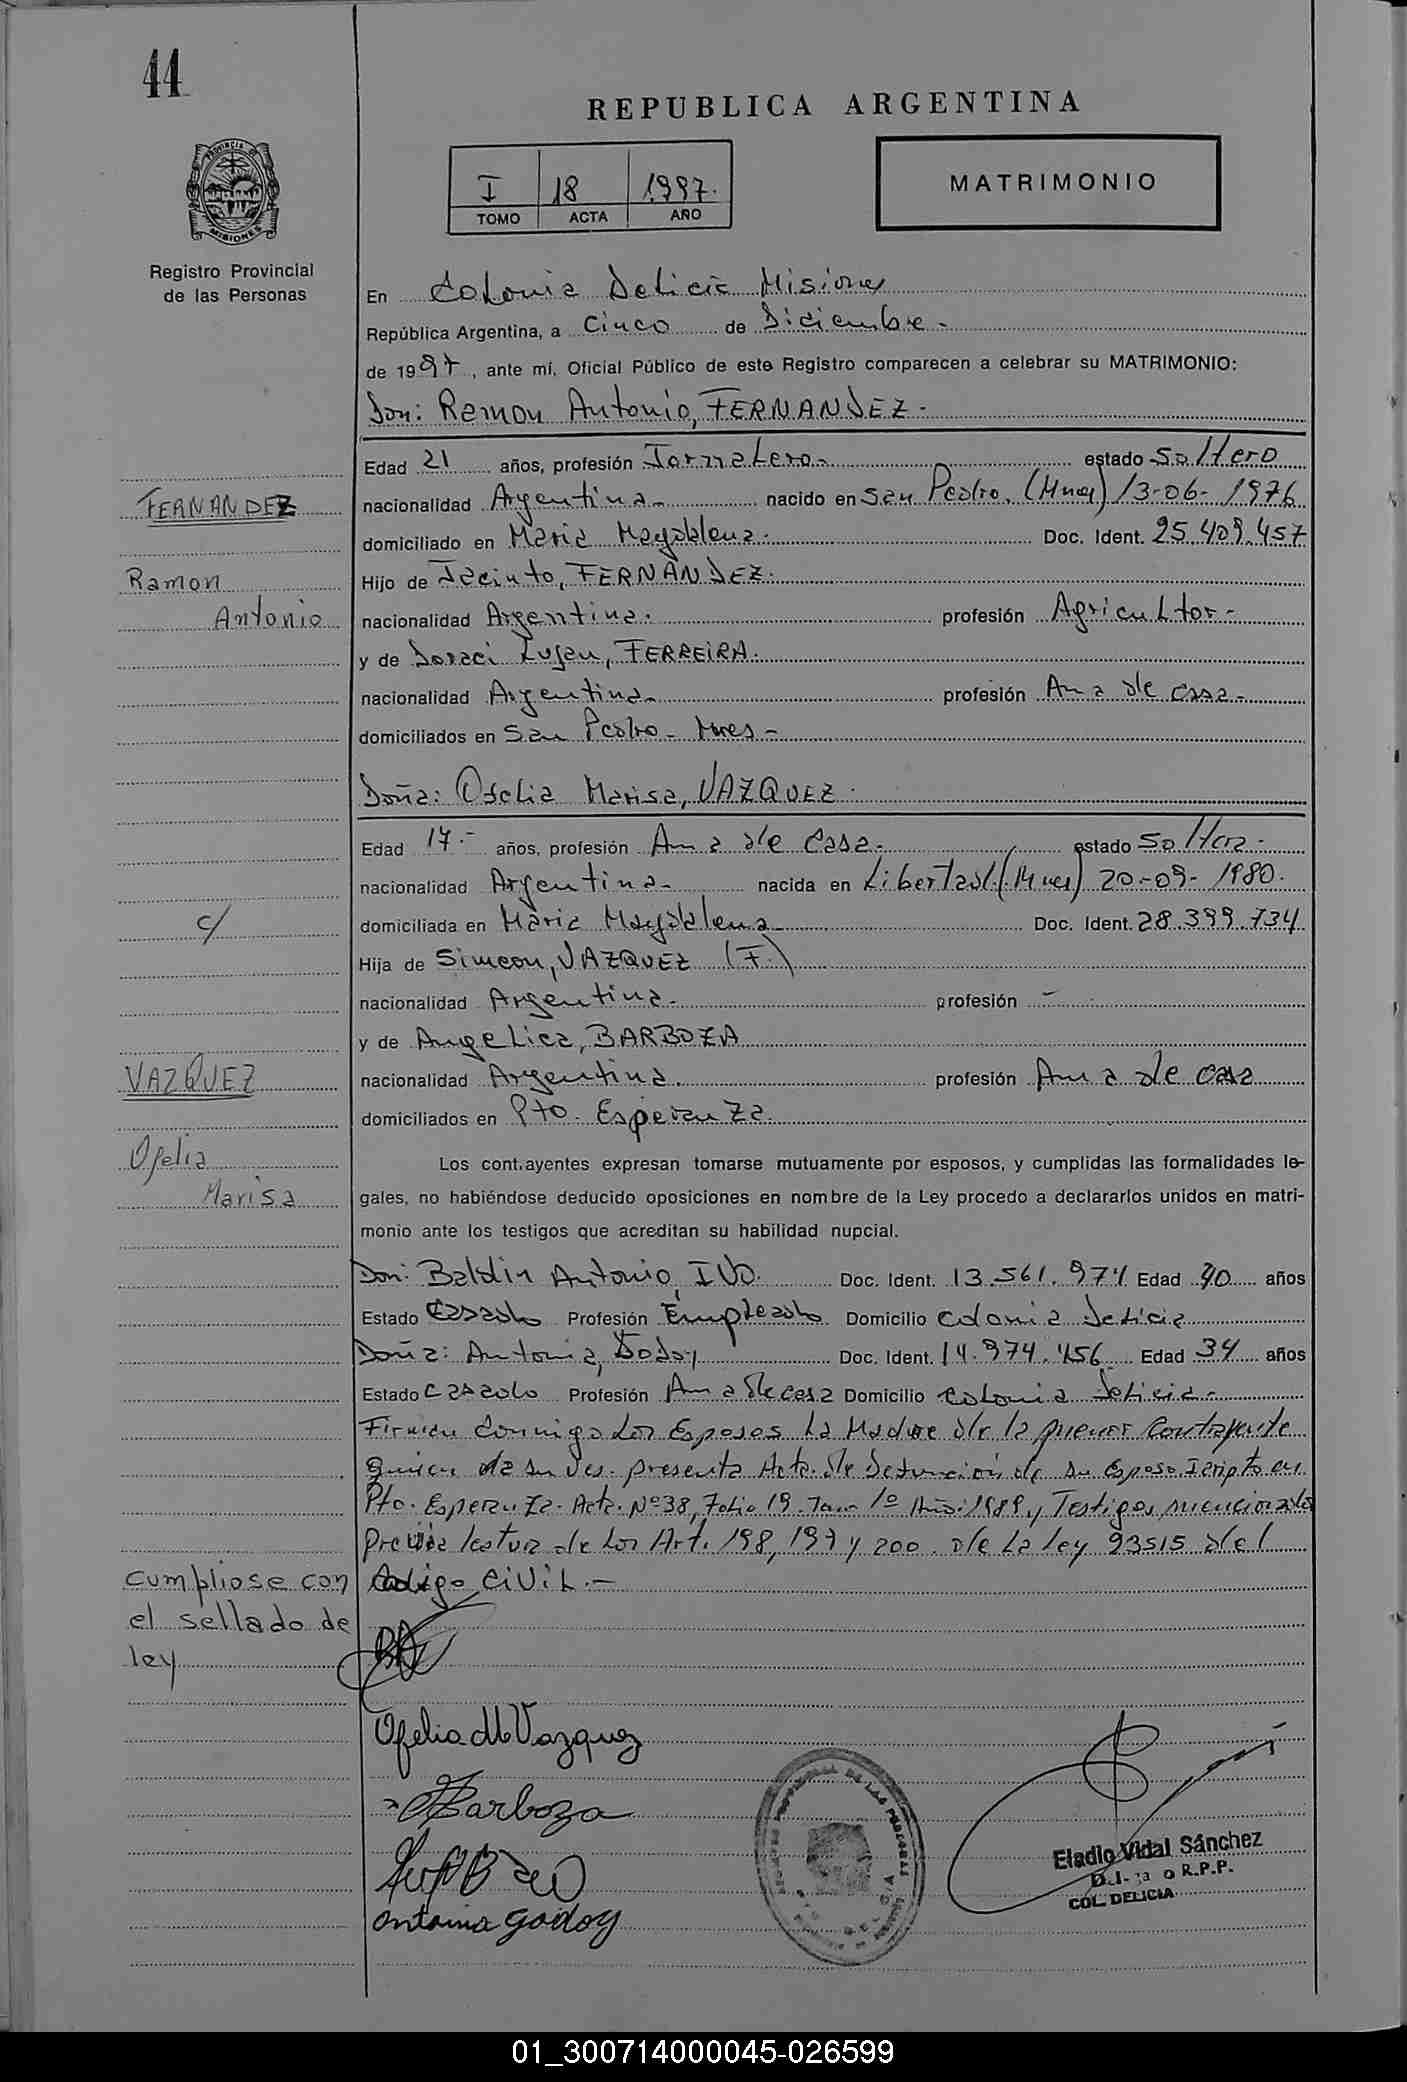 44
REPUBLICA ARGENTINA
I 18 1997.
TOMO ACTA AÑO
MATRIMONIO
PROVINCIA DE
MISIONES
Registro Provincial
de las Personas
En Colonia Delicia Misiones
República Argentina, a Cinco de Diciembre -
de 1997, ante mí, Oficial Público de este Registro comparecen a celebrar su MATRIMONIO:
Don: Ramon Antonio, FERNANDEZ -
Edad 21 años, profesión Jornalero - estado Soltero
nacionalidad Argentina - nacido en San Pedro. (Mnes) 13-06-1976
domiciliado en Maria Magdalena. Doc. Ident. 25.409.457
Hijo de Jacinto, FERNANDEZ.
nacionalidad Argentina. profesión Agricultor -
y de Doraci Lujan, FERREIRA.
nacionalidad Argentina - profesión Ama de casa -
domiciliados en San Pedro - Mnes -
Doña: Ofelia Marisa, VAZQUEZ.
Edad 17.- años, profesión Ama de Casa - estado Soltera -
nacionalidad Argentina - nacida en Libertad (Mnes) 20-09-1980.
domiciliada en Maria Magdalena - Doc. Ident. 28.399.734
Hija de Simeon, VAZQUEZ (F.)
nacionalidad Argentina - profesión -
y de Angelica, BARBOZA
nacionalidad Argentina. profesión Ama de casa
domiciliados en Pto. Esperanza.
Los contrayentes expresan tomarse mutuamente por esposos, y cumplidas las formalidades le-
gales, no habiéndose deducido oposiciones en nombre de la Ley procedo a declararlos unidos en matri-
monio ante los testigos que acreditan su habilidad nupcial.
Don: Baldin Antonio, IVO. Doc. Ident. 13.561.974 Edad 40 años
Estado Casado Profesión Empleado Domicilio Colonia Delicia
Doña: Antonia, Godoy Doc. Ident. 14.974.456 Edad 34 años
Estado Casado Profesión Ama de casa Domicilio Colonia Delicia -
Firman Conmigo Los Esposos La Madre de la menor Contrayente
Quien a su ves presenta Acta de Defunción de su Esposo Iscripto en
Pto. Esperanza. Acta. Nº 38, Folio 19. Tomo 1º Año: 1989 y Testigos mencionados
Previa lectura de Los Art. 198, 199 y 200. de La Ley 23515 del
Codigo CIVIL. -
FERNANDEZ
Ramon
Antonio
c/
VAZQUEZ
Ofelia
Marisa
Cumpliose con
el sellado de
ley
Ofelia M Vazquez
Barboza
Antonia Godoy
Eladio Vidal Sánchez
R.P.P.
COL. DELICIA
01_300714000045-026599